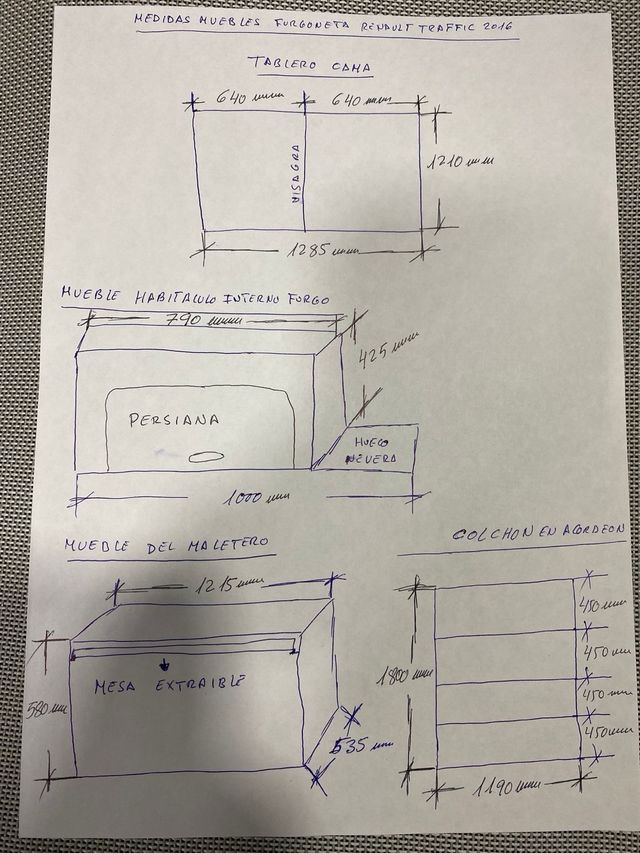 MEDIDAS MUEBLES FURGONETA RENAULT TRAFFIC 2016
TABLERO CAMA
640 mm 640 mm
VISAGRA
1210 mm
1285 mm
MUEBLE HABITALULO INTERNO FURGO
790 mm
425 mm
PERSIANA
HUECO
NEVERA
1000 mm
MUEBLE DEL MALETERO
1215 mm
580 mm
MESA EXTRAIBLE
535 mm
COLCHON EN ACORDEON
450 mm
450 mm
450 mm
450 mm
1800 mm
1190 mm